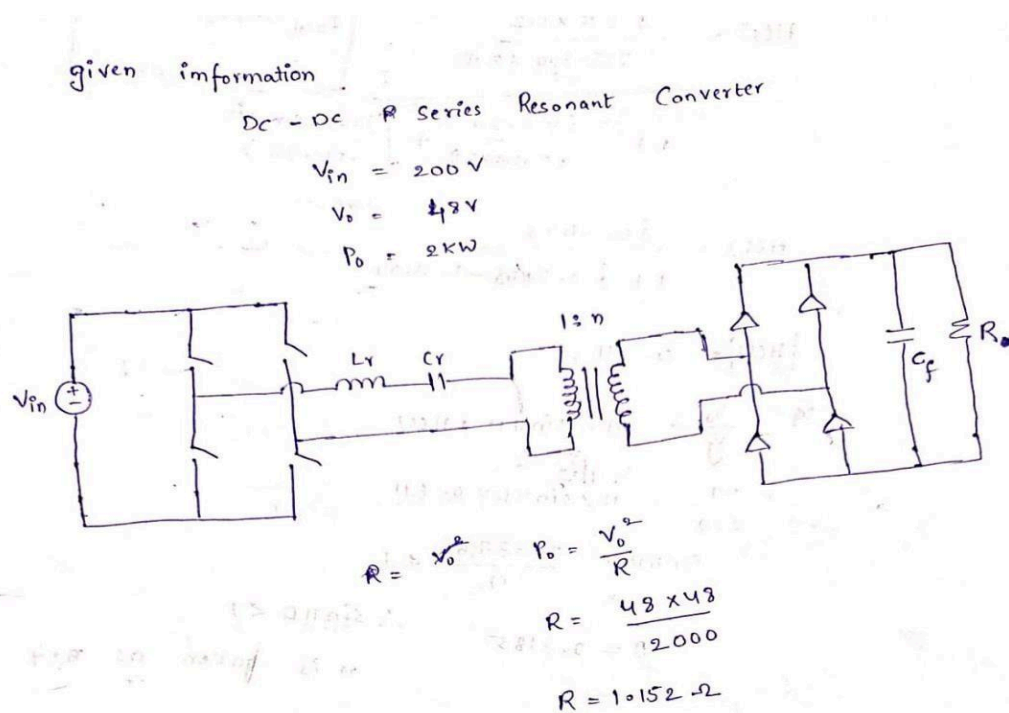 given imformation
DC - DC Series Resonant Converter
Vin = 200 V
V₀ = 48V
P₀ = 2KW
1:n
Lr Cr
Vin
Cf
R₀
R = V₀² P₀ = V₀²/R
R = 48 x48/2000
R = 1.152 Ω